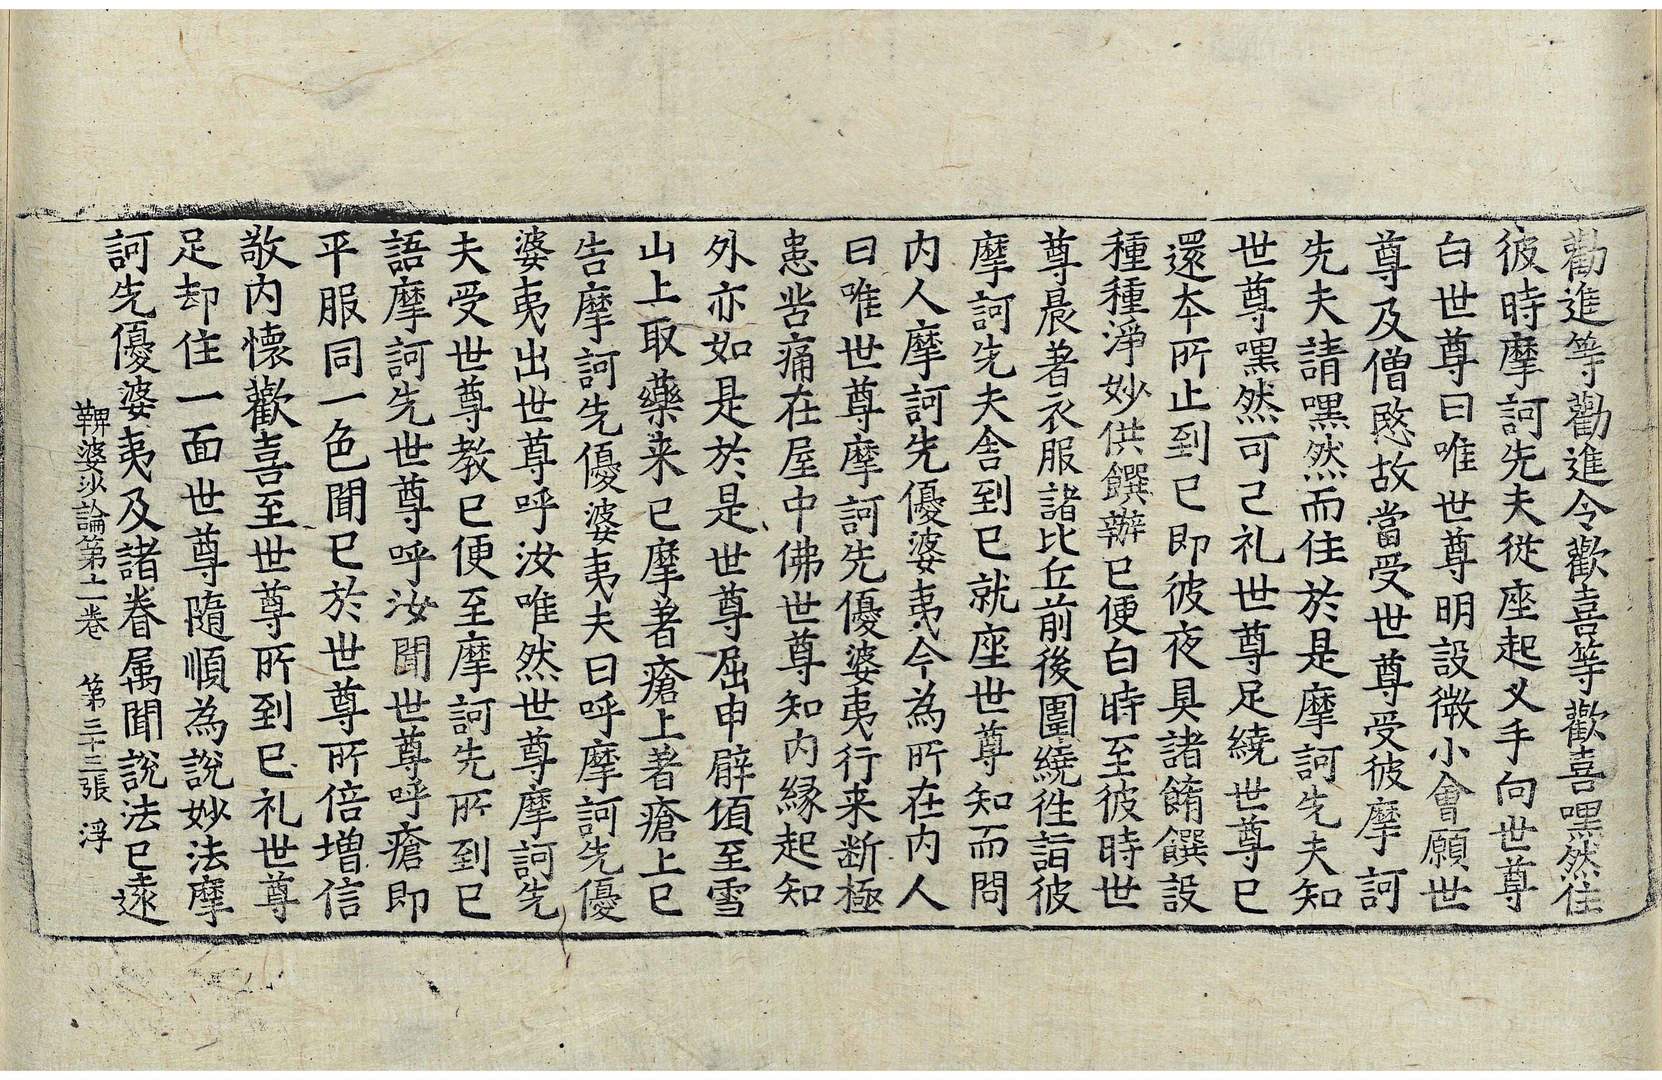 勸進等勸進令歡喜等歡喜嘿然住
彼時摩訶先夫從座起叉手向世尊
白世尊曰唯世尊明設微小會願世
尊及僧愍故當受世尊受彼摩訶
先夫請嘿然而住於是摩訶先夫知
世尊嘿然可己礼世尊足繞世尊已
還本所止到已即彼夜具諸餚饌設
種種淨妙供饌辦已便白時至彼時世
尊晨著衣服諸比丘前後圍繞徃詣彼
摩訶先夫舍到已就座世尊知而問
内人摩訶先優婆夷今為所在内人
曰唯世尊摩訶先優婆夷行来断極
患苦痛在屋中佛世尊知内緣起知
外亦如是於是世尊屈申臂頃至雪
山上取藥来已摩著瘡上著瘡上已
告摩訶先優婆夷夫曰呼摩訶先優
婆夷出世尊呼汝唯然世尊摩訶先
夫受世尊教已便至摩訶先所到已
語摩訶先世尊呼汝聞世尊呼瘡即
平服同一色聞已於世尊所倍增信
敬内懐歡喜至世尊所到已礼世尊
足却住一面世尊隨順為說妙法摩
訶先優婆夷及諸眷属聞說法已遠
鞞婆沙論第十一卷　第三十三張　浮